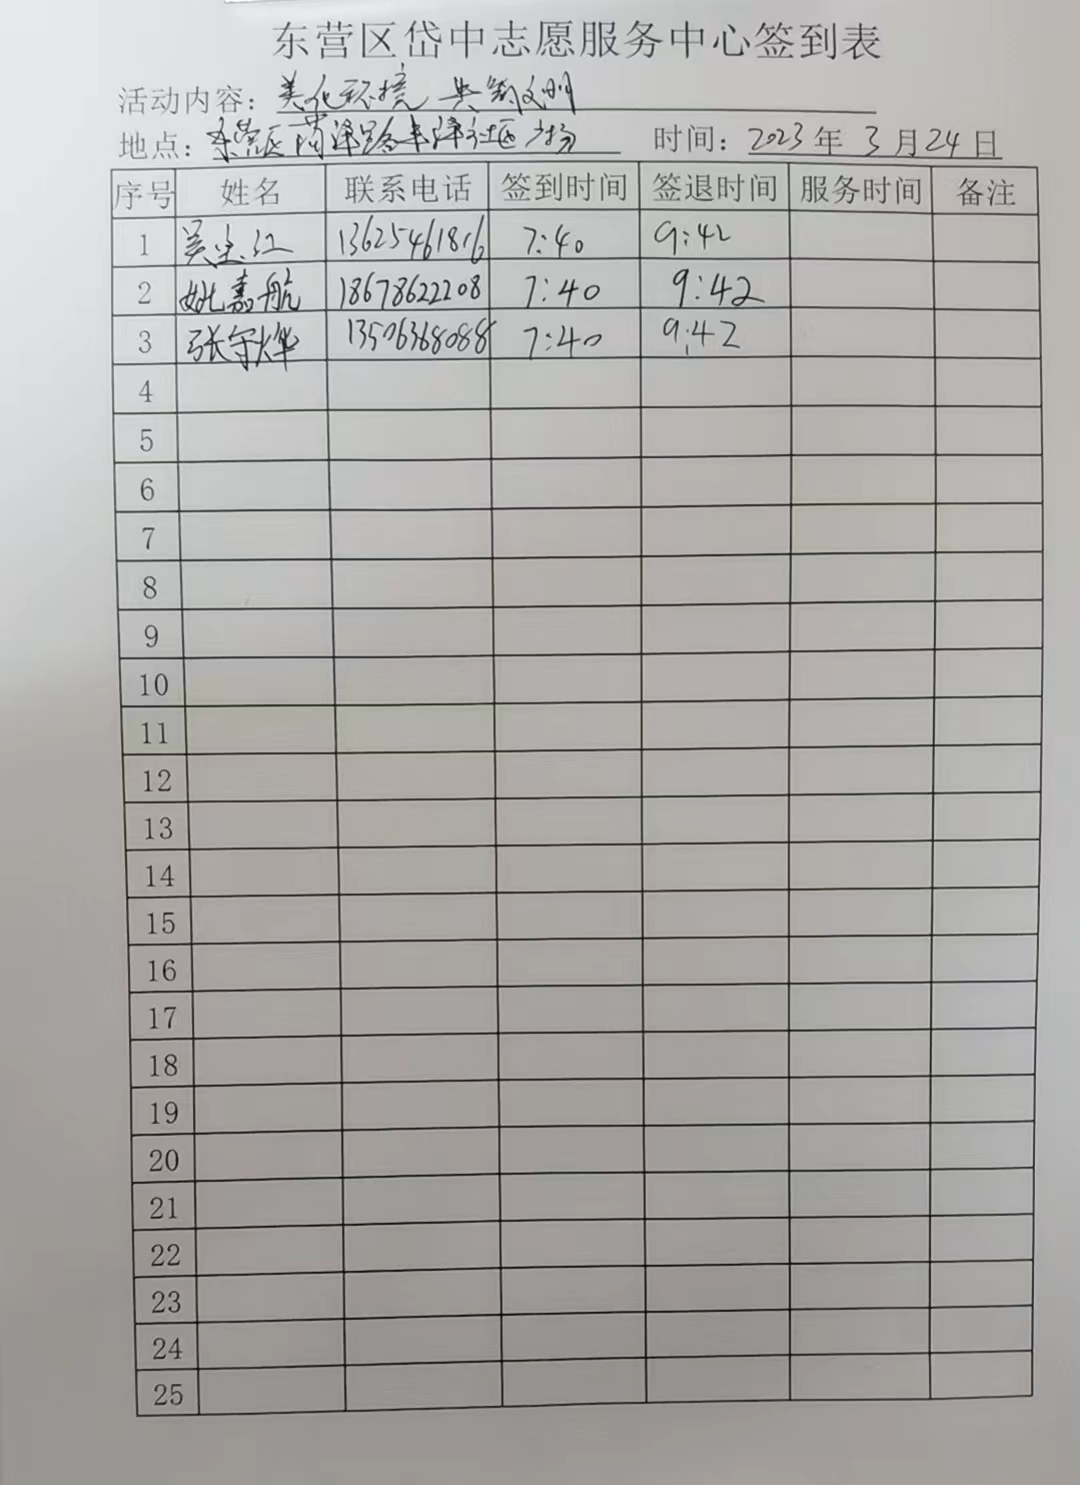 东营区岱中志愿服务中心签到表
活动内容：美化环境 共筑文明
地点：东营区菏泽路丰泽社区广场 时间：2023年3月24日
序号 姓名 联系电话 签到时间 签退时间 服务时间 备注
1 吴 江 13625461816 7:40 9:42
2 姚嘉航 18678622208 7:40 9:42
3 张守烨 13506368088 7:40 9:42
4
5
6
7
8
9
10
11
12
13
14
15
16
17
18
19
20
21
22
23
24
25